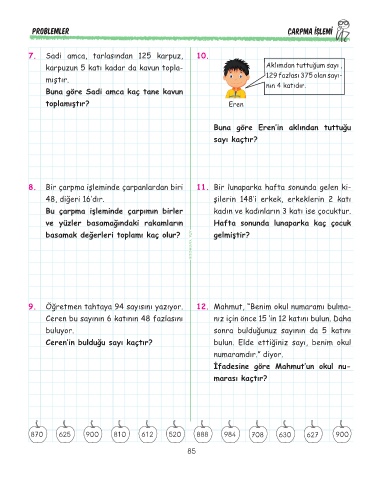 PROBLEMLER
ÇARPMA İŞLEMİ
7. Sadi amca, tarlasından 125 karpuz,
karpuzun 5 katı kadar da kavun topla-
mıştır.
Buna göre Sadi amca kaç tane kavun
toplamıştır?
8. Bir çarpma işleminde çarpanlardan biri
48, diğeri 16'dır.
Bu çarpma işleminde çarpımın birler
ve yüzler basamağındaki rakamların
basamak değerleri toplamı kaç olur?
9. Öğretmen tahtaya 94 sayısını yazıyor.
Ceren bu sayının 6 katının 48 fazlasını
buluyor.
Ceren'in bulduğu sayı kaçtır?
10.
Aklımdan tuttuğum sayı ,
129 fazlası 375 olan sayı-
nın 4 katıdır.
Eren
Buna göre Eren'in aklından tuttuğu
sayı kaçtır?
11. Bir lunaparka hafta sonunda gelen ki-
şilerin 148'i erkek, erkeklerin 2 katı
kadın ve kadınların 3 katı ise çocuktur.
Hafta sonunda lunaparka kaç çocuk
gelmiştir?
12. Mahmut, "Benim okul numaramı bulma-
nız için önce 15 'in 12 katını bulun. Daha
sonra bulduğunuz sayının da 5 katını
bulun. Elde ettiğiniz sayı, benim okul
numaramdır." diyor.
İfadesine göre Mahmut'un okul nu-
marası kaçtır?
870 625 900 810 612 520 888 984 708 630 627 900
85